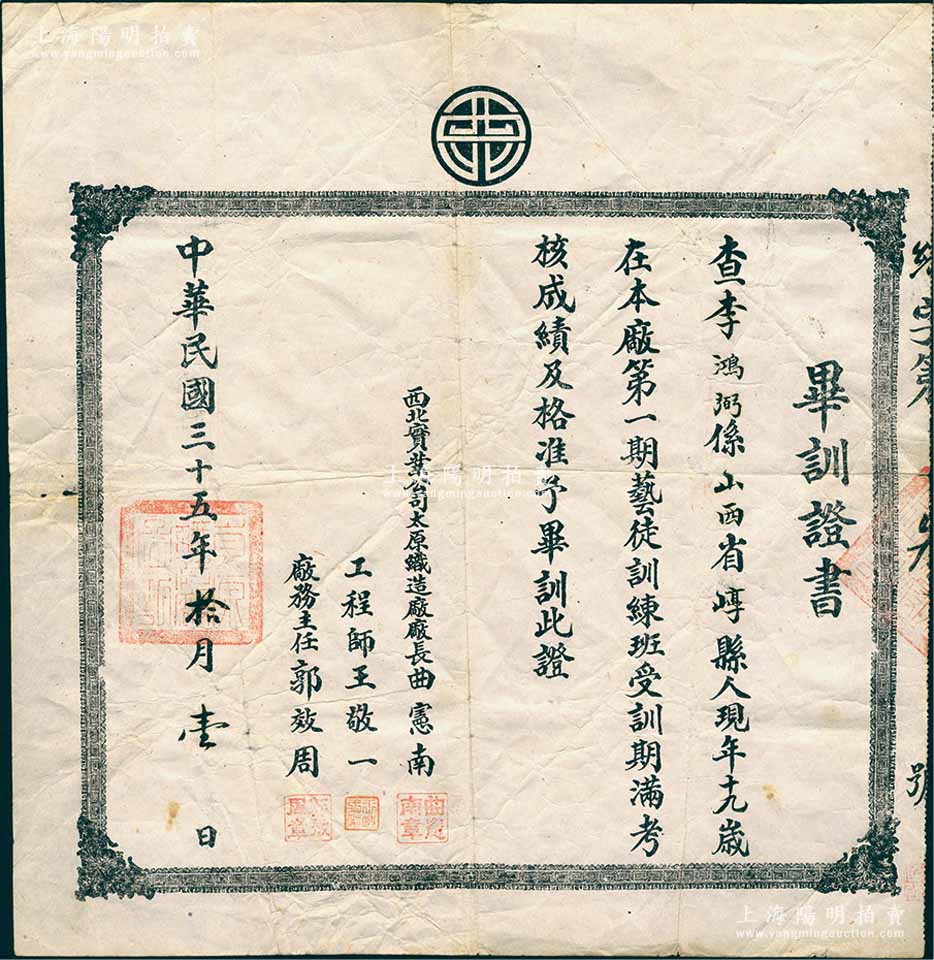 畢訓證書
查李鴻弼係山西省崞縣人現年十九歲
在本廠第一期藝徒訓練班受訓期滿考
核成績及格准予畢訓此證
西北實業公司太原織造廠廠長曲憲南
工程師王敬一
廠務主任郭效周
中華民國三十五年拾月壹日
號
曲憲南章
上海陽明拍賣
www.yangmingauction.com
上海陽明拍賣
www.yangmingauction.com
上海陽明拍賣
www.yangmingauction.com